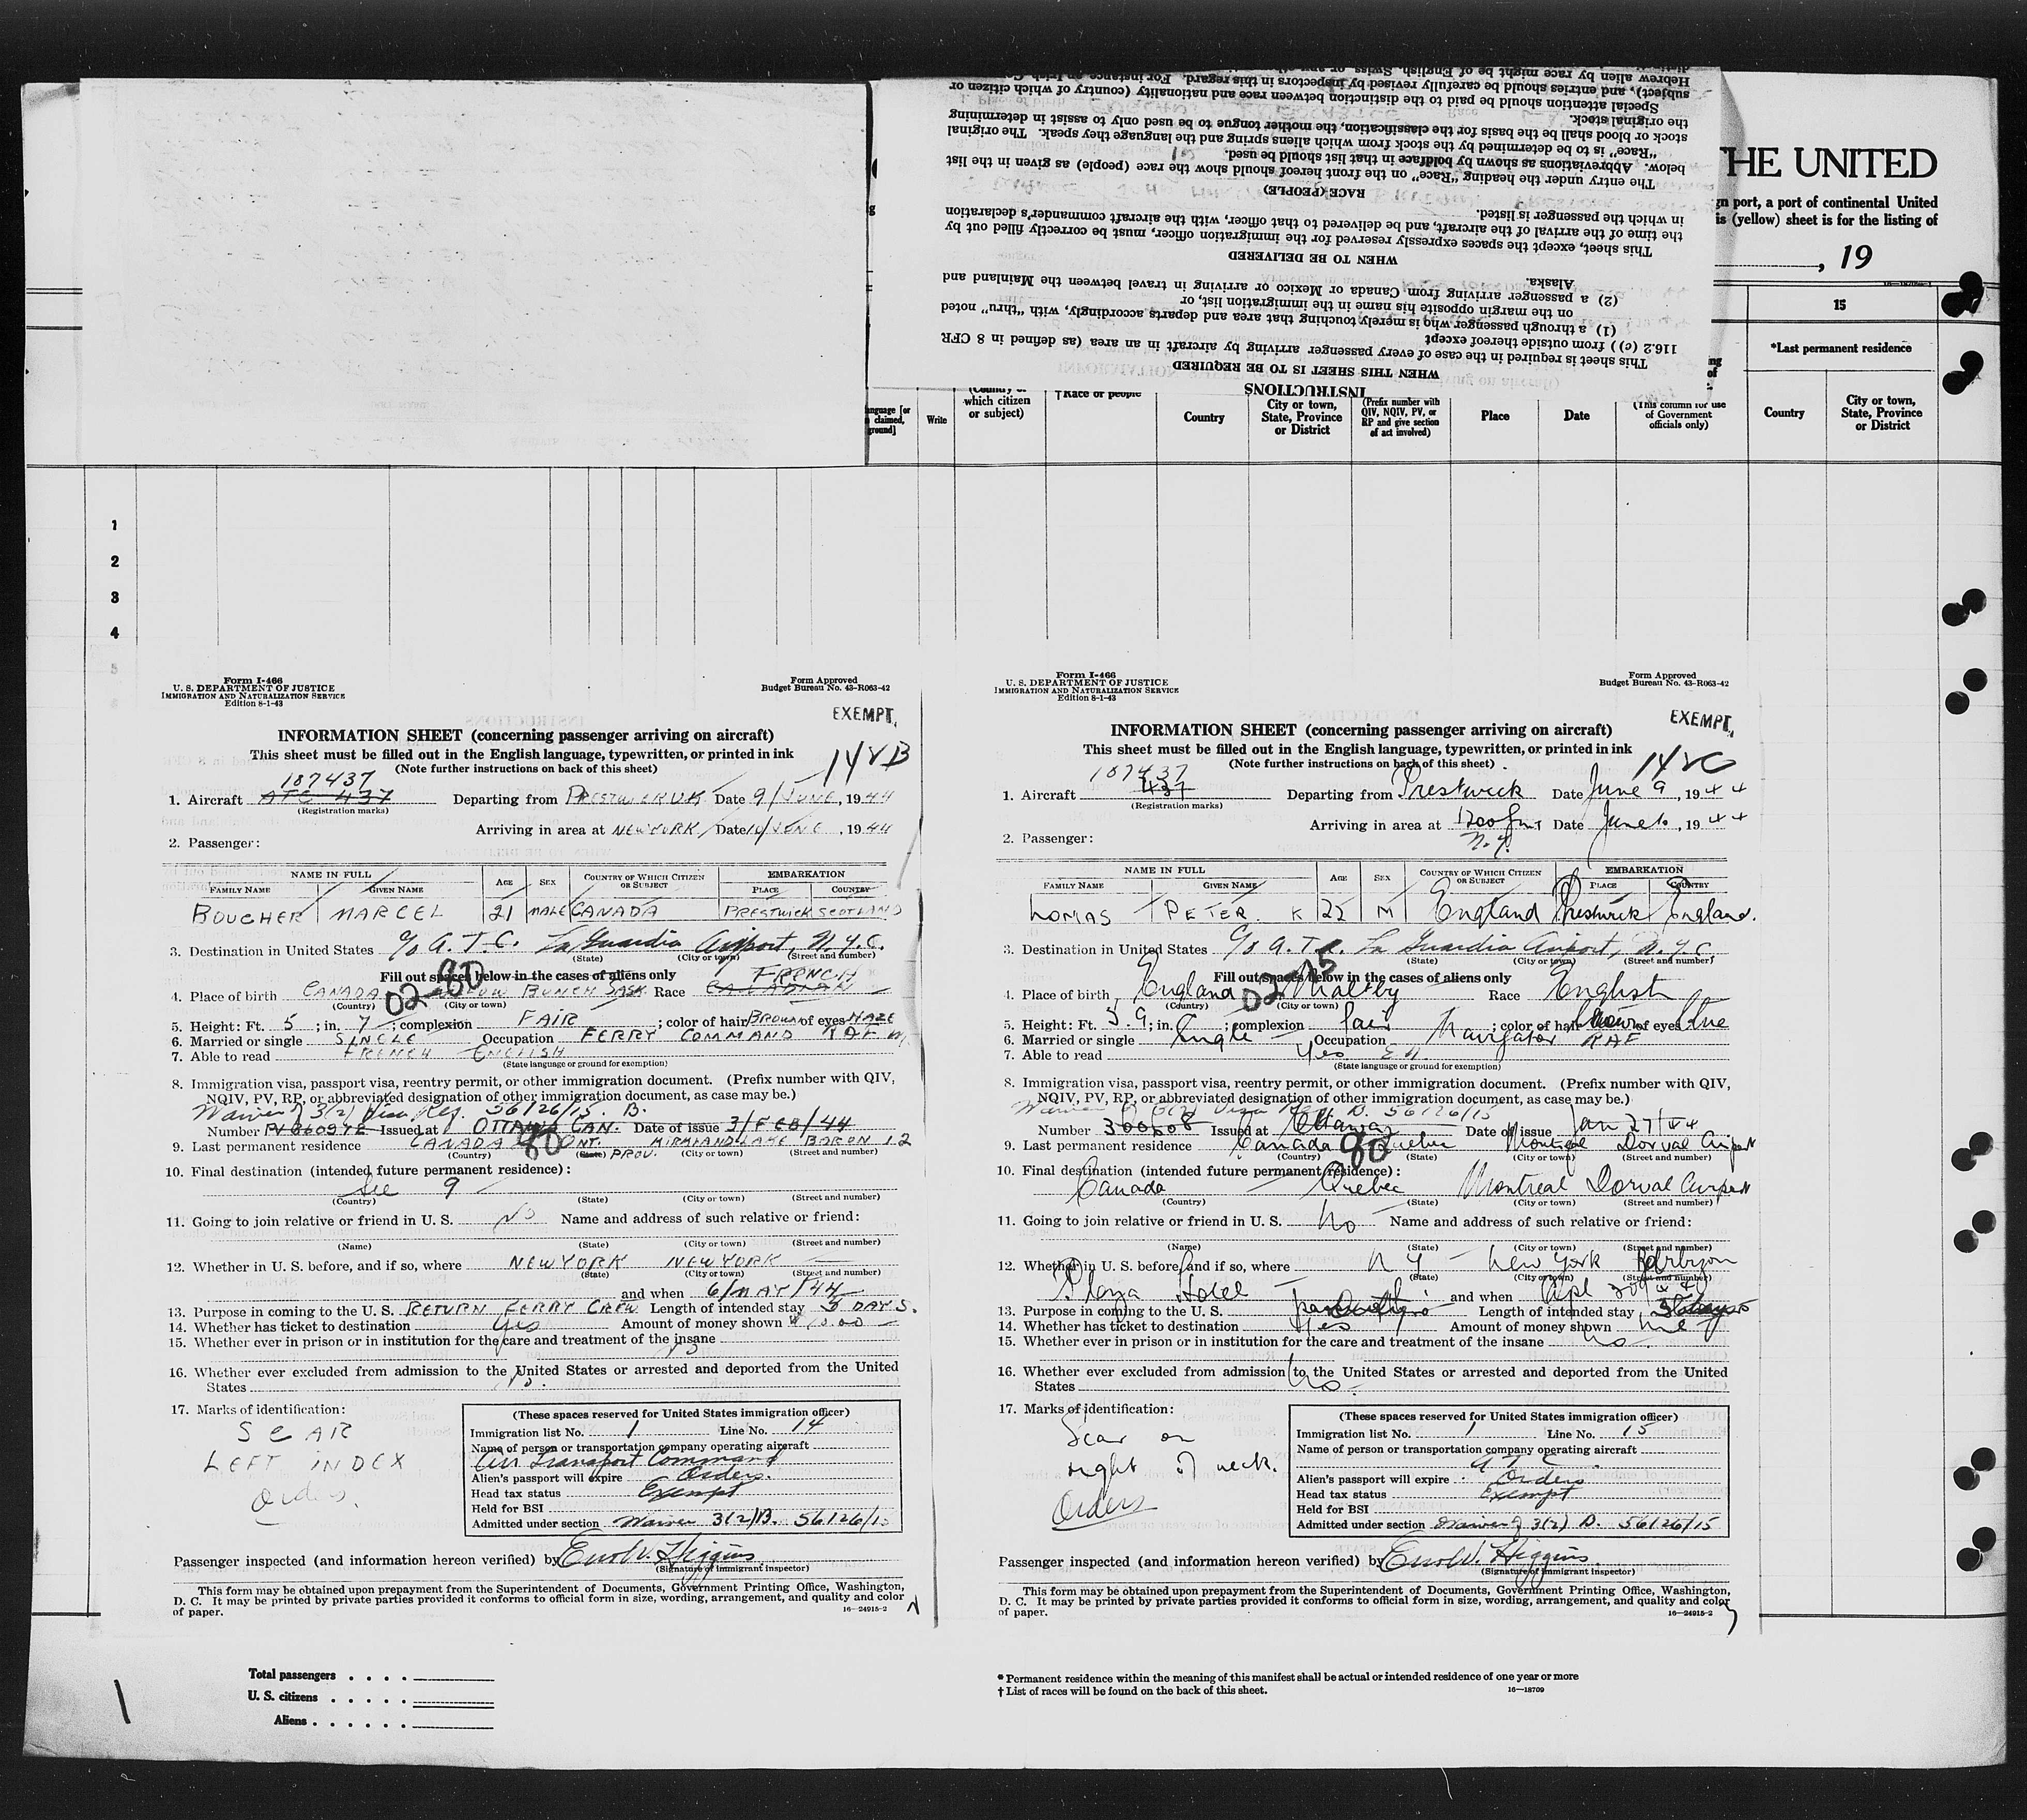 Hebrew alien by race might be of English, Swiss, or
subject), and entries should be carefully revised by inspectors in this regard. For instance, an Irish
Special attention should be paid to the distinction between race and nationality (country of which citizen or
the original stock.
stock or blood shall be the basis for the classification, the mother tongue to be used only to assist in determining
"Race" is to be determined by the stock from which aliens spring and the language they speak. The original
below. Abbreviations as shown by boldface in that list should be used.
The entry under the heading "Race" on the front hereof should show the race (people) as given in the list
RACE (PEOPLE)
in which the passenger is listed.
the time of the arrival of the aircraft, and be delivered to that officer, with the aircraft commander's declaration
This sheet, except the spaces expressly reserved for the immigration officer, must be correctly filled out by
WHEN TO BE DELIVERED
Alaska.
(2) a passenger arriving from Canada or Mexico or arriving in travel between the Mainland and
on the margin opposite his name in the immigration list, or
(1) a through passenger who is merely touching that area and departs accordingly, with "thru" noted
116.2 (c) ) from outside thereof except
This sheet is required in the case of every passenger arriving by aircraft in an area (as defined in 8 CFR
WHEN THIS SHEET IS TO BE REQUIRED
INSTRUCTIONS
THE UNITED
gn port, a port of continental United
is (yellow) sheet is for the listing of
, 19
15
*Last permanent residence
anguage [or
claimed,
ground]
Write
(Country of
which citizen
or subject)
†Race or people
Country
City or town,
State, Province
or District
(Prefix number with
QIV, NQIV, PV, or
RP and give section
of act involved)
Place
Date
(This column for use
of Government
officials only)
Country
City or town,
State, Province
or District
1
2
3
4
5
Form I-466
U. S. DEPARTMENT OF JUSTICE
IMMIGRATION AND NATURALIZATION SERVICE
Edition 8-1-43
Form Approved
Budget Bureau No. 43-R063-42
EXEMPT
INFORMATION SHEET (concerning passenger arriving on aircraft)
This sheet must be filled out in the English language, typewritten, or printed in ink
(Note further instructions on back of this sheet)
14 VB
187437
1. Aircraft ATC 437 Departing from PRESTWICK UK Date 9/JUNE, 1944
(Registration marks)
Arriving in area at NEW YORK Date 10/JUNE, 1944
2. Passenger:
NAME IN FULL AGE SEX COUNTRY OF WHICH CITIZEN OR SUBJECT EMBARKATION
FAMILY NAME GIVEN NAME PLACE COUNTRY
BOUCHER MARCEL 21 MALE CANADA PRESTWICK SCOTLAND
3. Destination in United States c/o A.T.C. La Guardia Airport, N.Y.C.
(State) (City or town) (Street and number)
Fill out spaces below in the cases of aliens only
02-80
FRENCH
4. Place of birth CANADA BUNCH SASK Race CANADIAN
(Country) (City or town)
5. Height: Ft. 5; in. 7; complexion FAIR; color of hair BROWN of eyes HAZE
6. Married or single SINGLE Occupation FERRY COMMAND RAF
7. Able to read FRENCH ENGLISH
(State language or ground for exemption)
8. Immigration visa, passport visa, reentry permit, or other immigration document. (Prefix number with QIV,
NQIV, PV, RP, or abbreviated designation of other immigration document, as case may be.)
Waiver of 3(2) Visa Reg. 56126/15. B.
Number Issued at OTTAWA CAN. Date of issue 3/FEB/44
9. Last permanent residence CANADA 80 ONT. KIRKLAND LAKE BARON 12
(Country) (State) PROV. (City or town) (Street and number)
10. Final destination (intended future permanent residence):
See 9
(Country) (State) (City or town) (Street and number)
11. Going to join relative or friend in U. S. NO Name and address of such relative or friend:
(Name) (State) (City or town) (Street and number)
12. Whether in U. S. before, and if so, where NEW YORK NEW YORK
(State) (City or town) (Street and number)
and when 6/MAY/44
13. Purpose in coming to the U. S. RETURN FERRY CREW Length of intended stay 3 DAYS.
14. Whether has ticket to destination Yes Amount of money shown $ 10.00
15. Whether ever in prison or in institution for the care and treatment of the insane
No
16. Whether ever excluded from admission to the United States or arrested and deported from the United
States No.
17. Marks of identification:
SCAR
LEFT INDEX
Orders.
(These spaces reserved for United States immigration officer)
Immigration list No. 1 Line No. 14
Name of person or transportation company operating aircraft
Air Transport Command
Alien's passport will expire Orders.
Head tax status Exempt
Held for BSI
Admitted under section Waiver 3(2)/B. 56126/15
Passenger inspected (and information hereon verified) by Errol V. Higgins
(Signature of immigrant inspector)
This form may be obtained upon prepayment from the Superintendent of Documents, Government Printing Office, Washington,
D. C. It may be printed by private parties provided it conforms to official form in size, wording, arrangement, and quality and color
of paper.
16—24915-2
Form I-466
U. S. DEPARTMENT OF JUSTICE
IMMIGRATION AND NATURALIZATION SERVICE
Edition 8-1-43
Form Approved
Budget Bureau No. 43-R063-42
EXEMPT
INFORMATION SHEET (concerning passenger arriving on aircraft)
This sheet must be filled out in the English language, typewritten, or printed in ink
(Note further instructions on back of this sheet)
187437
1. Aircraft 437 Departing from Prestwick Date June 9, 1944
(Registration marks)
Arriving in area at 1200 gmt Date June 10, 1944
N.Y.
2. Passenger:
NAME IN FULL AGE SEX COUNTRY OF WHICH CITIZEN OR SUBJECT EMBARKATION
FAMILY NAME GIVEN NAME PLACE COUNTRY
LOMAS PETER K 22 M England Prestwick England.
3. Destination in United States c/o A.T.C. La Guardia Airport, N.Y.C.
(State) (City or town) (Street and number)
Fill out spaces below in the cases of aliens only
4. Place of birth England Maltby Race English
(Country) (City or town)
5. Height: Ft. 5.9; in.; complexion fair; color of hair of eyes blue
6. Married or single Single Occupation Navigator RAF
7. Able to read Yes
(State language or ground for exemption)
8. Immigration visa, passport visa, reentry permit, or other immigration document. (Prefix number with QIV,
NQIV, PV, RP, or abbreviated designation of other immigration document, as case may be.)
Waiver of 3(2) Visa Reg. B. 56126/15
Number 300608 Issued at Ottawa Date of issue Jan 27/44
9. Last permanent residence Canada 80 Quebec Montreal Dorval Airport
(Country) (State) (City or town) (Street and number)
10. Final destination (intended future permanent residence):
Canada Quebec Montreal Dorval Airport
(Country) (State) (City or town) (Street and number)
11. Going to join relative or friend in U. S. No Name and address of such relative or friend:
(Name) (State) (City or town) (Street and number)
12. Whether in U. S. before, and if so, where N Y New York Barbizon
(State) (City or town) (Street and number)
Plaza Hotel and when Apl 30 44
13. Purpose in coming to the U. S. Length of intended stay 3 days
14. Whether has ticket to destination Yes Amount of money shown
15. Whether ever in prison or in institution for the care and treatment of the insane No
16. Whether ever excluded from admission to the United States or arrested and deported from the United
States No
17. Marks of identification:
Scar on
right of neck.
Orders
(These spaces reserved for United States immigration officer)
Immigration list No. 1 Line No. 15
Name of person or transportation company operating aircraft
A T C.
Alien's passport will expire Orders
Head tax status Exempt
Held for BSI
Admitted under section Waiver of 3(2) B. 56126/15
Passenger inspected (and information hereon verified) by Errol V. Higgins.
(Signature of immigrant inspector)
This form may be obtained upon prepayment from the Superintendent of Documents, Government Printing Office, Washington,
D. C. It may be printed by private parties provided it conforms to official form in size, wording, arrangement, and quality and color
of paper.
16—24915-2
Total passengers . . . .
U. S. citizens . . . . .
Aliens . . . . . .
* Permanent residence within the meaning of this manifest shall be actual or intended residence of one year or more
† List of races will be found on the back of this sheet.
16—18709